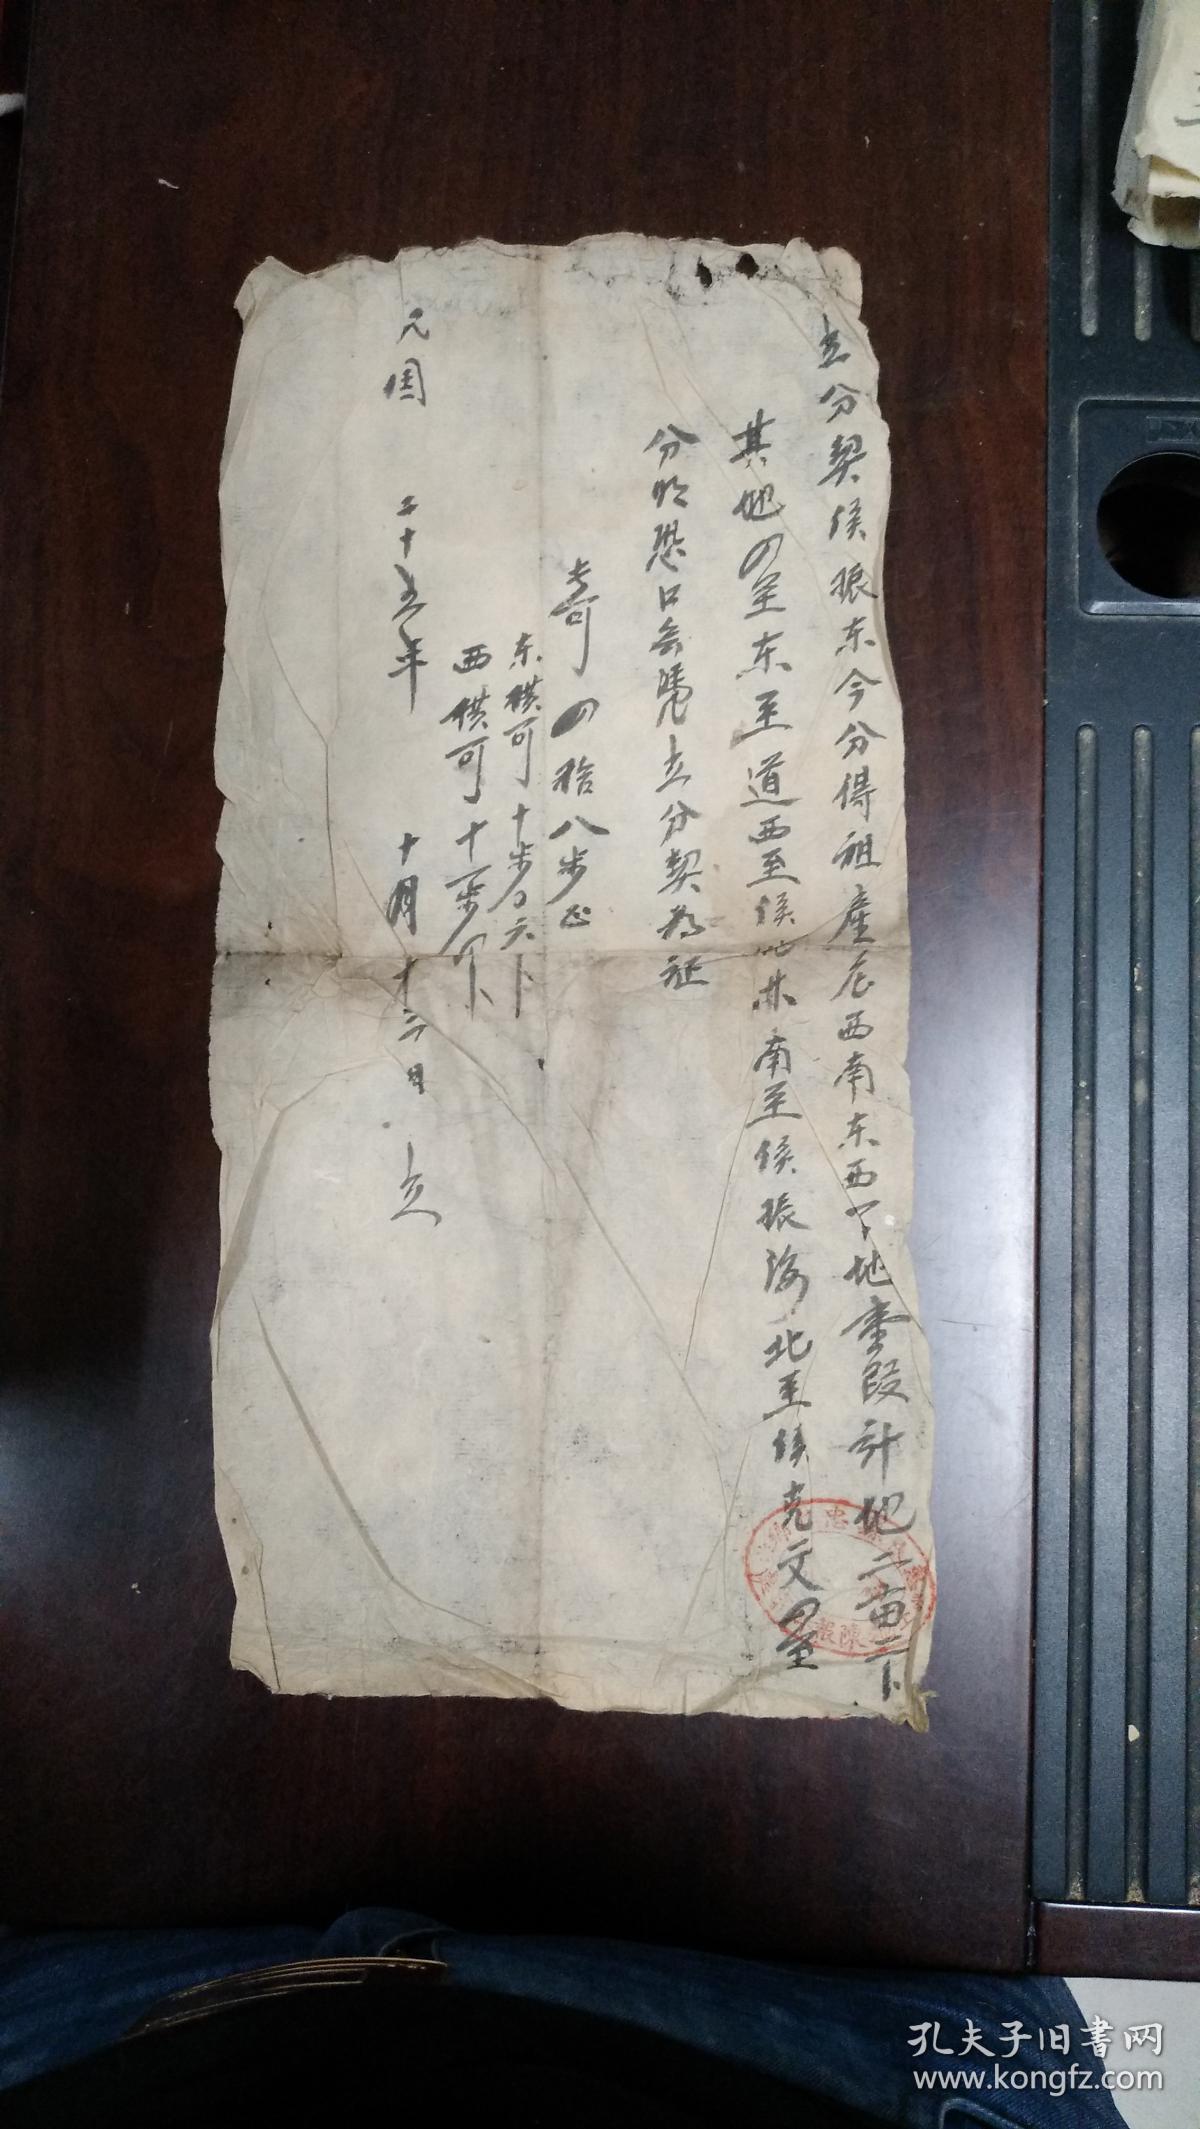 立分契侯振东今分得祖產庄西南东西下地壹段计地二亩二卜
其地四至东至道西至侯 林南至侯振海北至侯克文四至
分明恐口无凭立分契为证
長可四拾八步正
东横可十步〇六卜
西横可十一步
民国 二十五年 十月 十二日 立
忠 陳報
孔夫子旧書网
www.kongfz.com